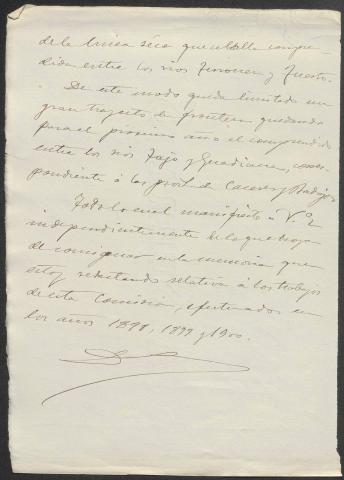 de la línea seca que se halla compren-
dida entre los ríos
De este modo queda limitado un
gran trayecto de frontera quedando
para el proximo año el comprendido
entre los rios Tajo y Guadiana, corres-
pondiente á las prov.s de Caceres y Badajoz
Todo lo cual manifiesto á V.
independientemente de lo que haya
de consignar en la memoria que
estoy redactando relativa á los trabajos
de esta Comisión, efectuados en
los años 1898, 1899 y 1900.